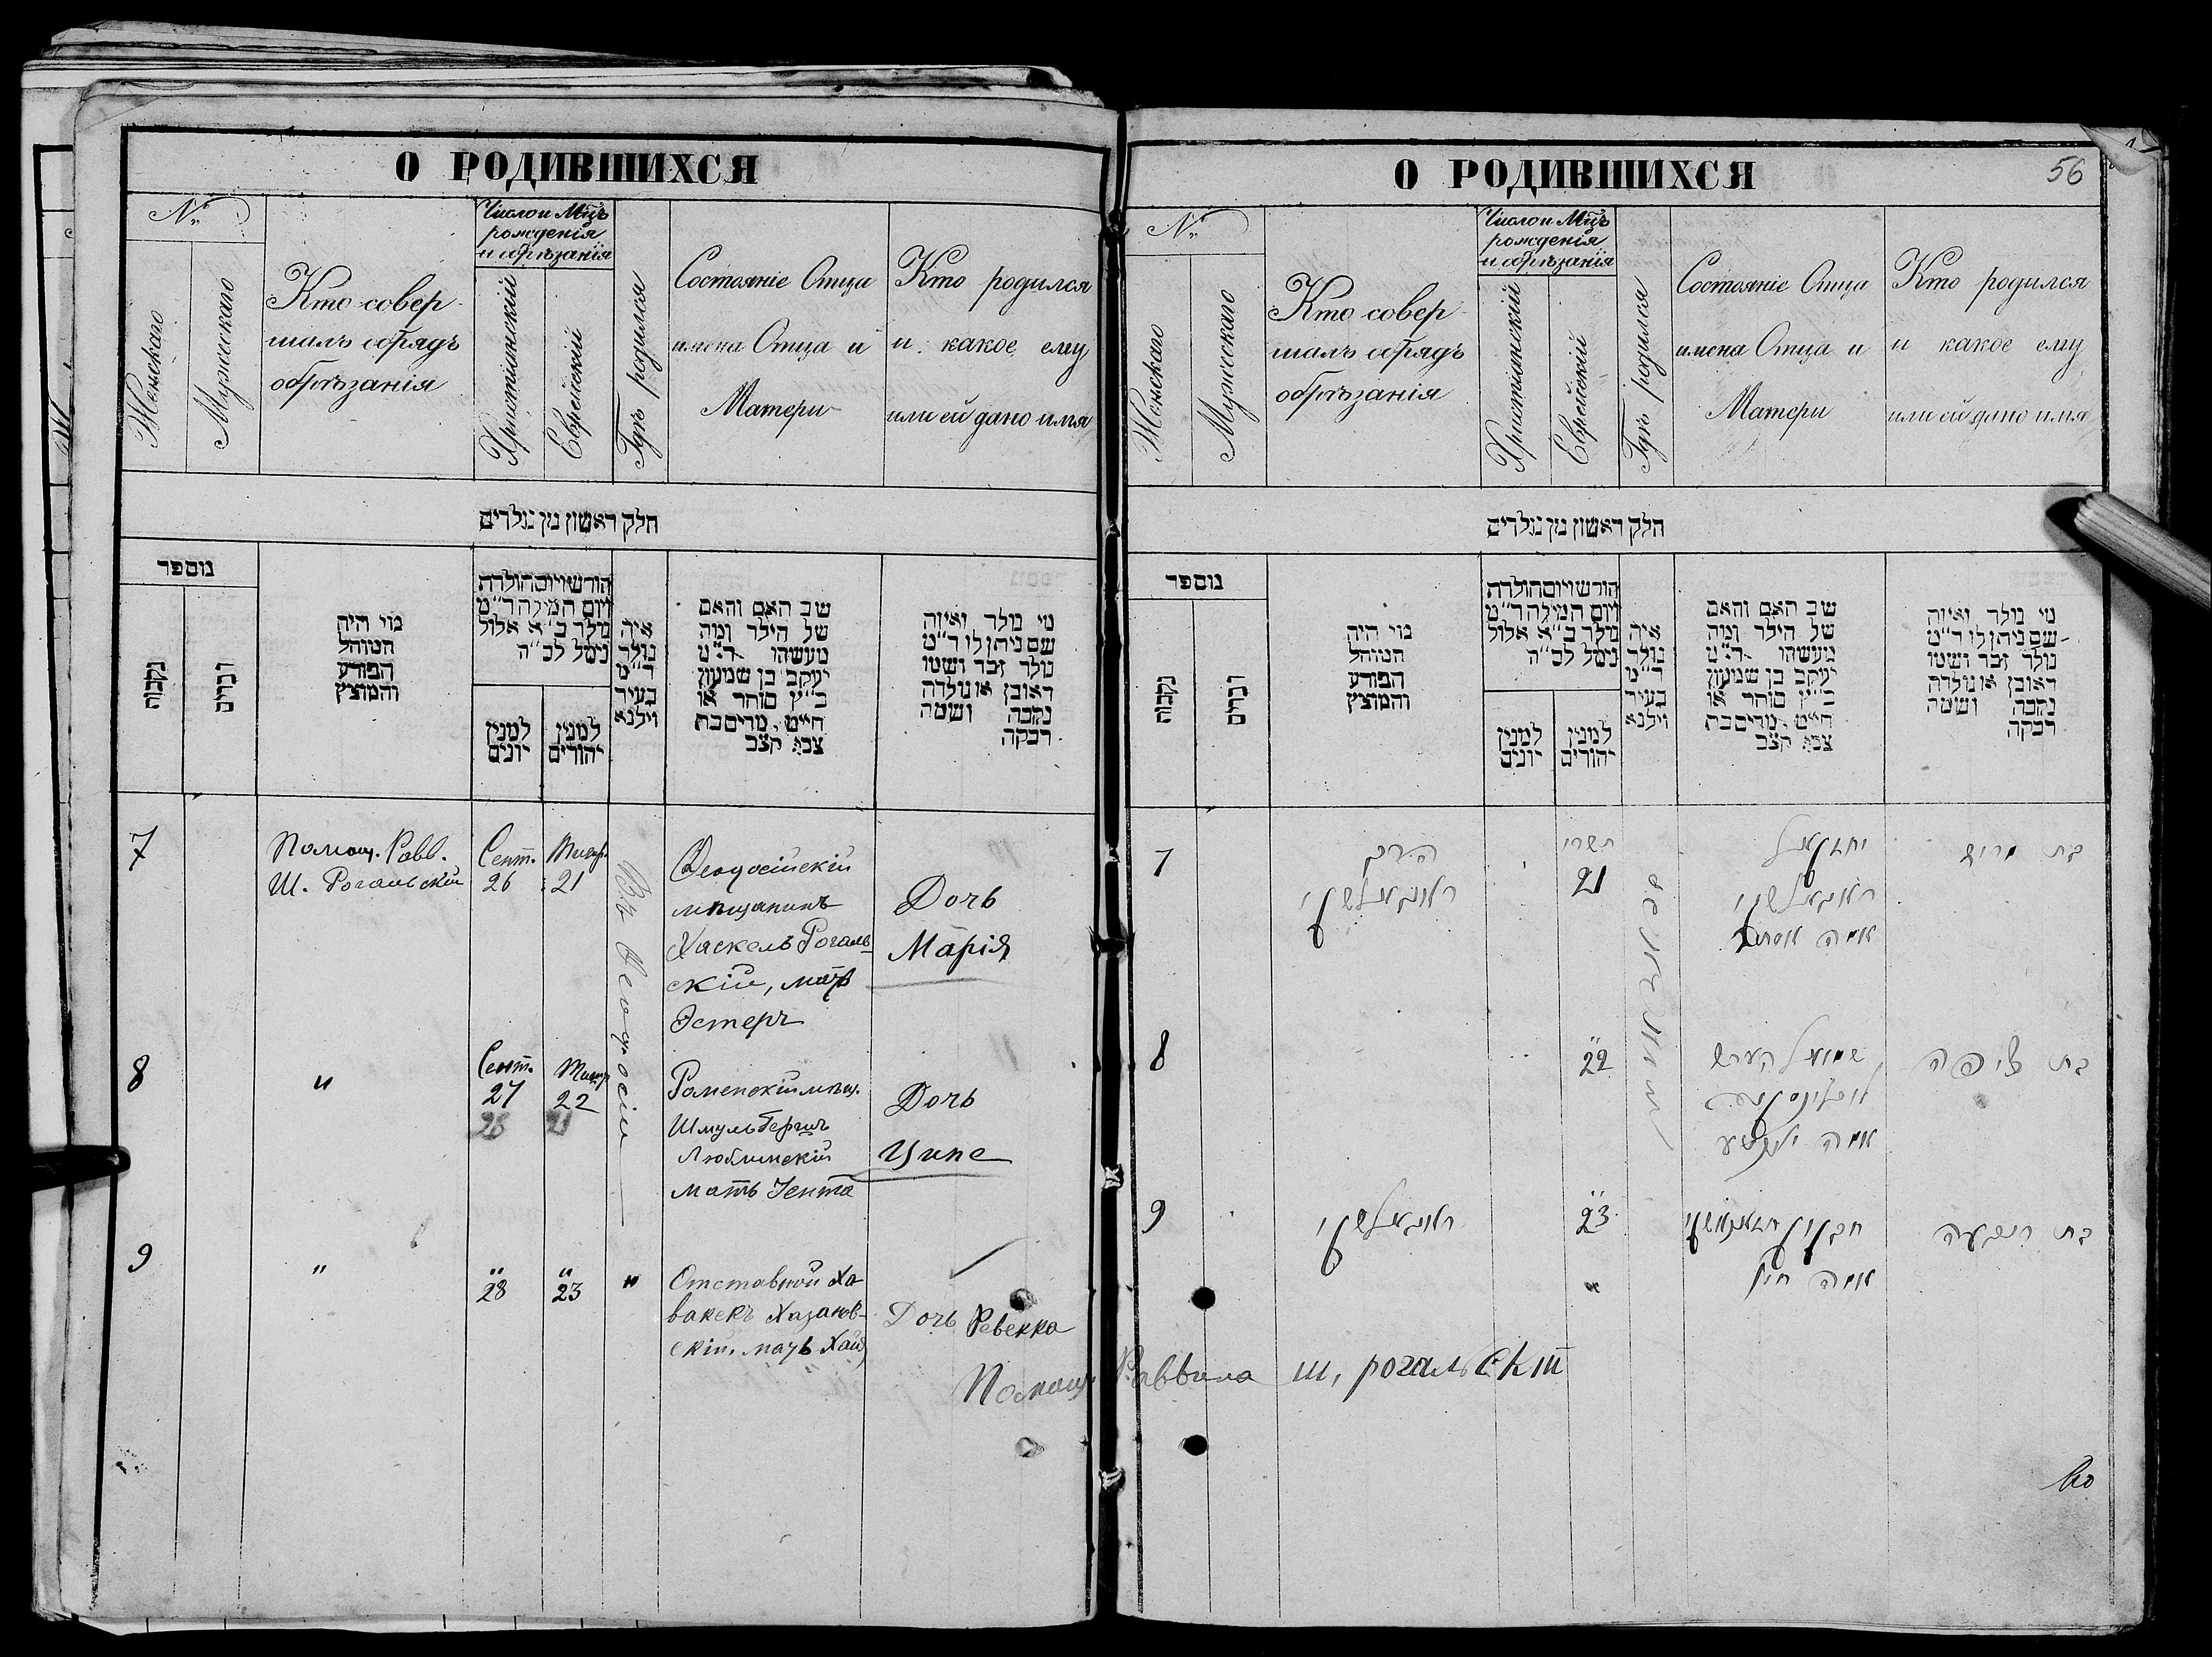 О РОДИВШИХСЯ
№
Женскаго
Мужескаго
Кто совер
шалъ обрядъ
обрѣзанія
Число и Мѣцъ
рожденія
и обрѣзанія
Христіянскій
Еврейскій
Гдѣ родился
Состояніе Отца
имена Отца и
Матери
Кто родился
и какое ему
или ей дано имя
חלק ראשון מן נולדים
מוספר
נקבות
זכרים
מוי היה
המוהל
הפורע
והמוצץ
חודש ויום הולדת
ויום המילה ד"מ
נולד ב"א אלול
נימל לכ"ה
למנין
יונים
למנין
יהודים
איה
נולד
ד"מ
בעיר
ווילנא
שב האם והאם
של הילד ומה
מעשהו ד"מ
יעקב בן שמעון
כ"ץ סוחר או
חייט מרים בת
צבי קצב
מי נולד ואיזה
שם ניתן לו ד"מ
נולד זכר ושמו
ראובן או נולדה
נקבה ושמה
רבקה
7
Помощ. Равв.
Ш. Рогальскій
Сент.
26
Тишр.
21
Въ Ѳеодосіи
Ѳеодосійскій
мѣщанинъ
Хаскель Рогаль-
скій, мать
Эстеръ
Дочь
Марія
8
"
Сент.
27
Тишр
22
Роменскій мѣщ.
Шмуль Гершъ
Люблинскій
мать Іента
Дочь
Ципе
9
"
"
28
"
23
"
Отставной Ха
вакекъ Хазанов-
скій, мать Хая
Дочь Ревекка
Помощ. Раввина Ш. Рогальскій
О РОДИВШИХСЯ
56
№
Женскаго
Мужескаго
Кто совер
шалъ обрядъ
обрѣзанія
Число и Мѣцъ
рожденія
и обрѣзанія
Христіянскій
Еврейскій
Гдѣ родился
Состояніе Отца
имена Отца и
Матери
Кто родился
и какое ему
или ей дано имя
חלק ראשון מן נולדים
מוספר
נקבות
זכרים
מוי היה
המוהל
הפורע
והמוצץ
חודש ויום הולדת
ויום המילה ד"מ
נולד ב"א אלול
נימל לכ"ה
למנין
יונים
למנין
יהודים
איה
נולד
ד"מ
בעיר
ווילנא
שב האם והאם
של הילד ומה
מעשהו ד"מ
יעקב בן שמעון
כ"ץ סוחר או
חייט מרים בת
צבי קצב
מי נולד ואיזה
שם ניתן לו ד"מ
נולד זכר ושמו
ראובן או נולדה
נקבה ושמה
רבקה
7
הרב
ראגאלסקי
תשרי
21
יחזקאל
ראגאלסקי
אמה אסתר
בת
8
"
22
שמואל הערש
אמה יענטע
בת ציפה
9
ראגאלסקי
"
23
"
אמה חיה
בת